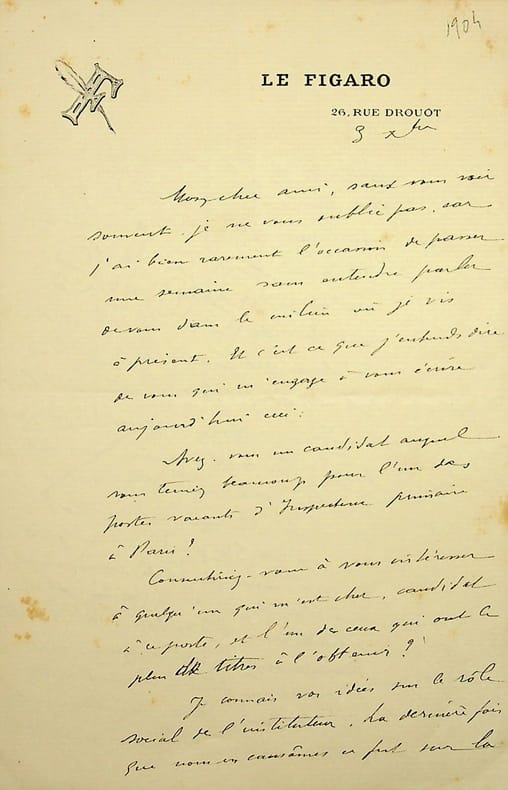 1904
LE FIGARO
26, RUE DROUOT
3 xbre
Mon cher ami, sans vous voir
souvent je ne vous oublie pas, car
j'ai bien rarement l'occasion de passer
une semaine sans entendre parler
de vous dans le milieu où je vis
à présent. Et c'est ce que j'entends dire
de vous qui m'engage à vous écrire
aujourd'hui ceci :
Avez-vous un candidat auquel
vous teniez beaucoup pour l'un des
postes vacants d'Inspecteur primaire
à Paris ?
Consentiriez-vous à vous intéresser
à quelqu'un qui m'est cher, candidat
à ce poste, et l'un de ceux qui ont le
plus de titres à l'obtenir ?
Je connais vos idées sur le rôle
social de l'instituteur. La dernière fois
que nous en causâmes ce fut sur la